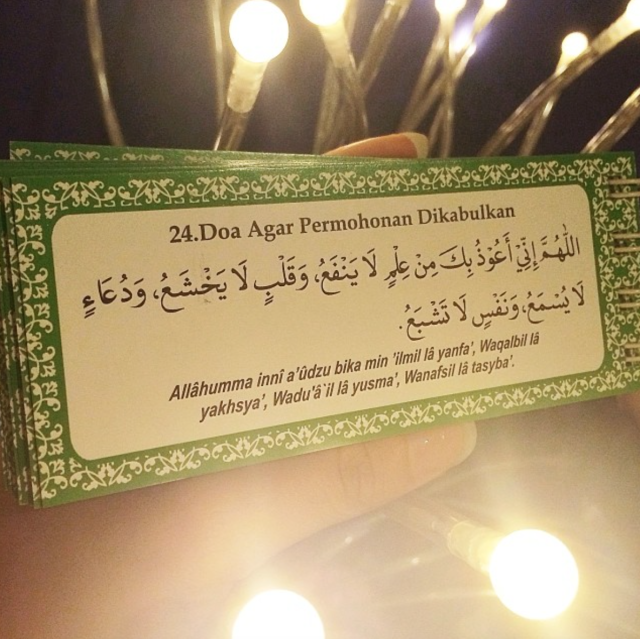 24.Doa Agar Permohonan Dikabulkan
اَللّٰهُمَّ إِنِّيْ أَعُوْذُ بِكَ مِنْ عِلْمٍ لَا يَنْفَعُ، وَقَلْبٍ لَا يَخْشَعُ، وَدُعَاءٍ
لَا يُسْمَعُ، وَنَفْسٍ لَا تَشْبَعُ.
Allâhumma innî a'ûdzu bika min 'ilmil lâ yanfa', Waqalbil lâ
yakhsya', Wadu'â`il lâ yusma', Wanafsil lâ tasyba'.